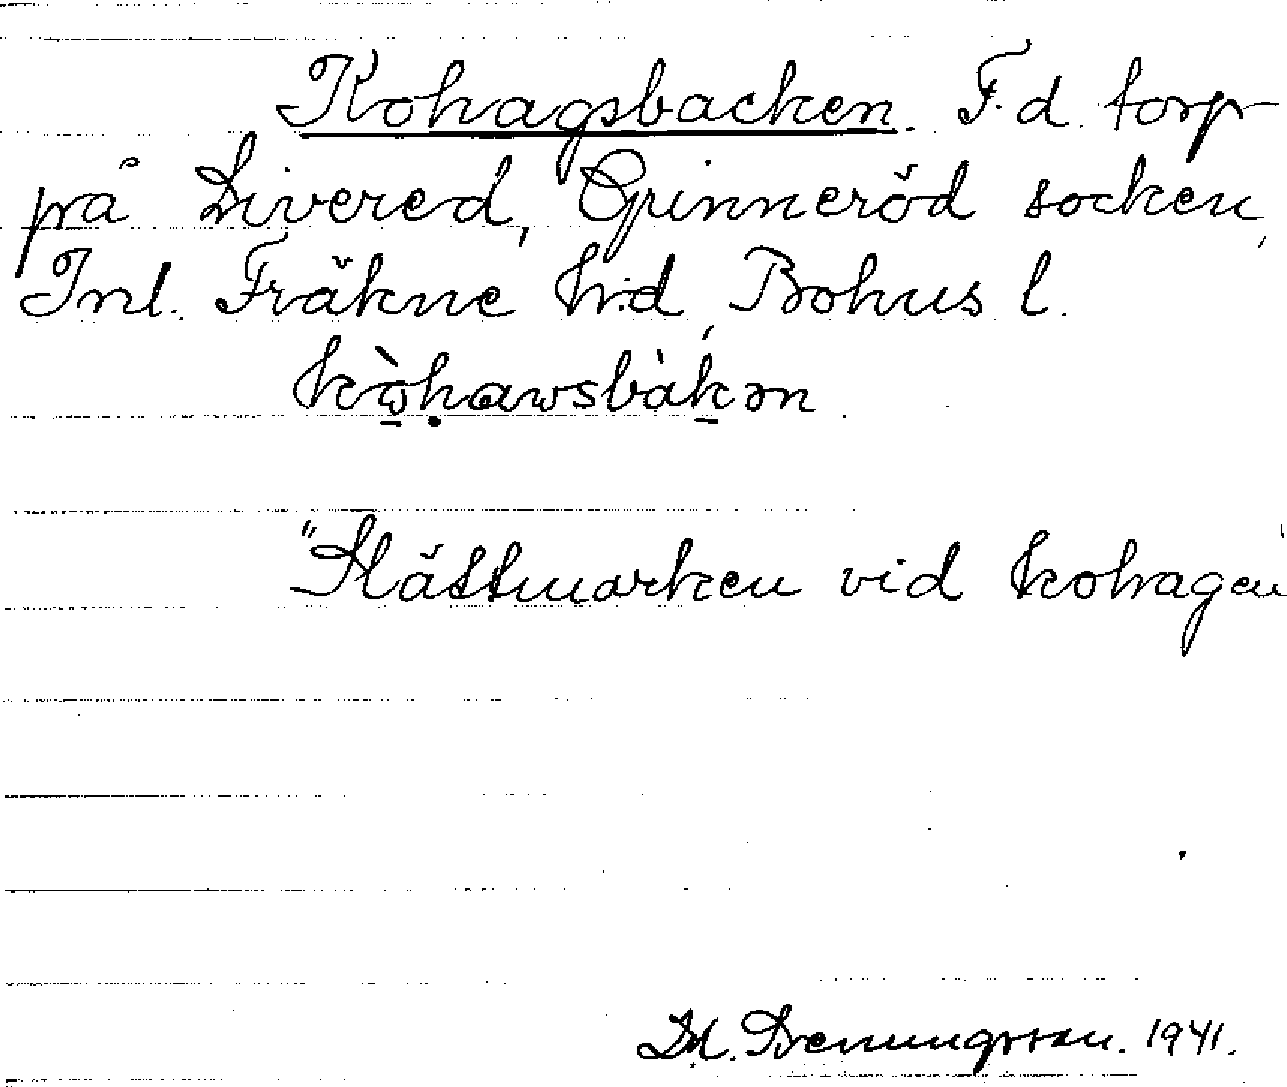 Kohagsbacken. F.d. torp
på Livered, Grinneröd socken,
Inl. Fräkne hd, Bohus l.
kòhawsbàkən
"Slåttmarken vid kohagen"
1941.